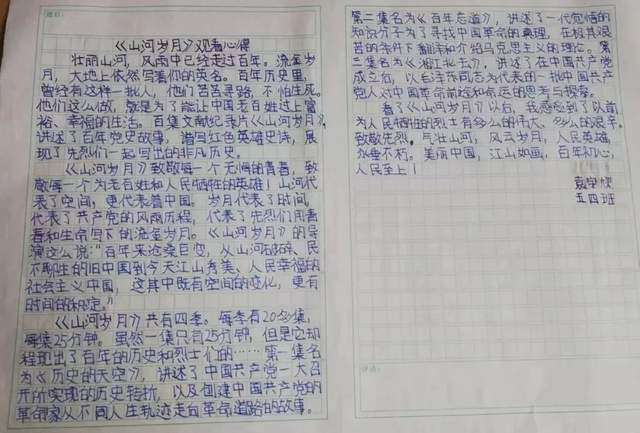 《山河岁月》观看心得
壮丽山河,风雨中已经走过百年。流金岁
月,大地上依然写着你的英名。百年历史里,
曾经有这样一批人,他们苦苦寻路,不怕生死。
他们这么做,就是为了能让中国老百姓过上富
裕、幸福的生活。百集文献纪录片《山河岁月》,
讲述了百年党史故事,谱写红色英雄史诗,展
现了先烈们一起写出的非凡历史。
《山河岁月》致敬每一个无悔的青春,致
敬每一个为老百姓和人民牺牲的英雄!山河代
表了空间,更代表着中国。岁月代表了时间,
代表了共产党的风雨历程,代表了先烈们用青
春和生命写下的流金岁月。《山河岁月》的导
演这么说:“百年来沧桑巨变,从山河破碎、民
不聊生的旧中国到今天江山秀美、人民幸福的
社会主义中国,这其中既有空间的变化,更有
时间的积淀。”
《山河岁月》共有四季。每季有20多集,
每集25分钟。虽然一集只有25分钟,但是它却
程现出了百年的历史和烈士们的……第一集名
为《历史的天空》,讲述了中国共产党一大召
开所实现的历史转折,以及创建中国共产党的
革命家从不同人生轨迹走向革命道路的故事。
第二集名为《百年志道》,讲述了一代觉悟的
知识分子为了寻找中国革命的真理,在极其艰
苦的条件下翻译和介绍马克思主义的理论。第
三集名为《湘江北去》,讲述了在中国共产党
成立后,以毛泽东同志为代表的一批中国共产
党人对中国革命前途和命运的思考与探索。
看了《山河岁月》以后,我感悟到了以前
为人民牺牲的烈士有多么的伟大,多么的艰辛。
致敬先烈,气壮山河,风云岁月,人民英雄,
永垂不朽。美丽中国,江山如画,百年初心,
人民至上!
五四班